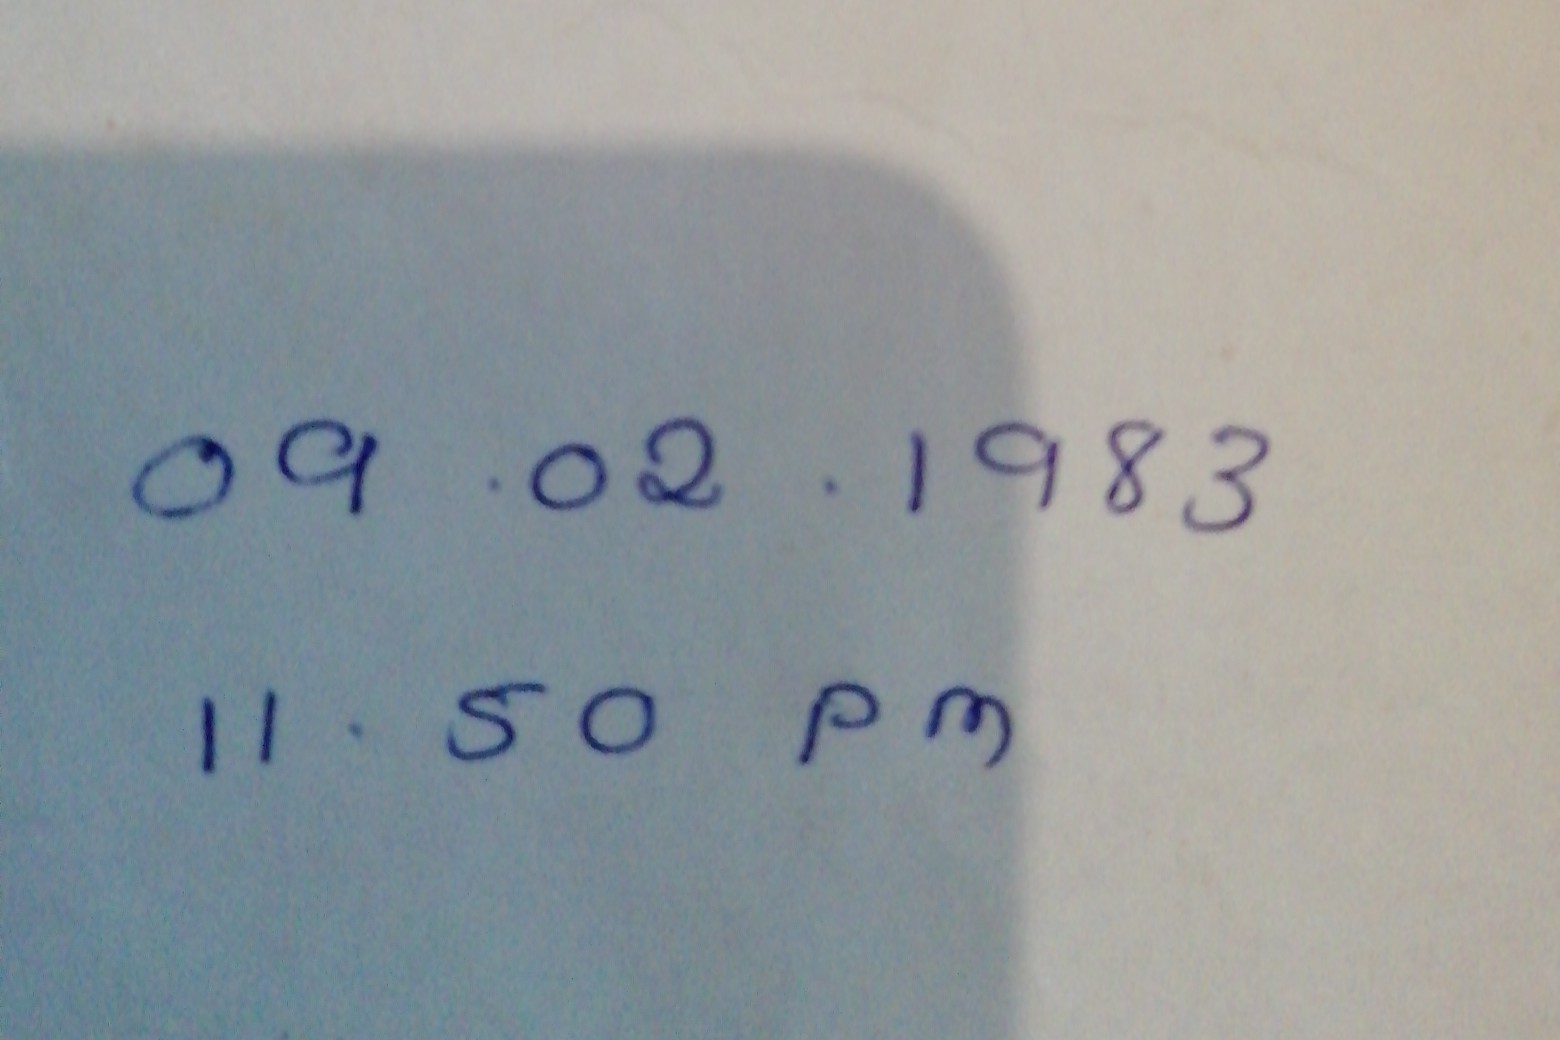 09.02.1983
11.50 pm